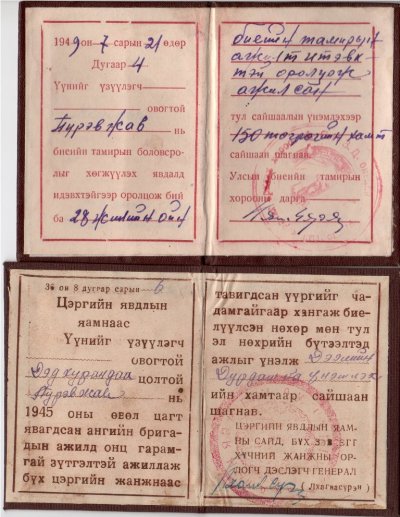 1949 он 7 сарын 21 өдөр
Дугаар 4
Үүнийг үзүүлэгч
овогтой
Пүрэвжав нь
биеийн тамирын боловсро-
лыг хөгжүүлэх явдалд
идэвхтэйгээр оролцож бий
ба 28 жилийн ойн
биеийн тамирын
оролцож
ажил сайн
тул сайшаалын үнэмлэхээр
150 төгрөгийн хамт
сайшаан шагнав.
Улсын биеийн тамирын
хорооны дарга
он 8 дугаар сарын 6
Цэргийн явдлын
яамнаас
Үүнийг үзүүлэгч
овогтой
Дэд хурандаа цолтой
Пүрэвжав нь
1945 оны өвөл цагт
явагдсан ангийн брига-
дын ажилд онц гарам-
гай зүтгэлтэй ажиллаж
бүх цэргийн жанжнаас
тавигдсан үүргийг ча-
дамгайгаар хангаж бие-
лүүлсэн нөхөр мөн тул
эл нөхрийн бүтээлтэд
ажлыг үнэлж Дээлийн
үнэмлэх
ийн хамтаар сайшаан
шагнав.
ЦЭРГИЙН ЯВДЛЫН ЯАМ-
НЫ САЙД, БҮХ ЦЭРЭГ
ХҮЧНИЙ ЖАНЖНЫ ОР-
ЛОГЧ ДЭСЛЭГЧ ГЕНЕРАЛ
(Лхагвасүрэн)